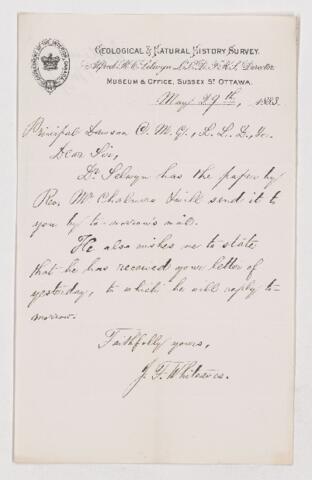 GEOLOGICAL & NATURAL HISTORY SURVEY.
Alfred R. C. Selwyn L.L.D. F.R.S. Director
MUSEUM & OFFICE, SUSSEX ST OTTAWA.
May 29th, 1883.
Principal Dawson C. M. G., L. L. D., &c.
Dear Sir,
Dr Selwyn has the paper by
Rev. Mr Chalmers & will send it to
you by to-morrow's mail.
He also wishes me to state
that he has received your letter of
yesterday, to which he will reply to-
morrow.
Faithfully yours,
J. F. Whiteaves.